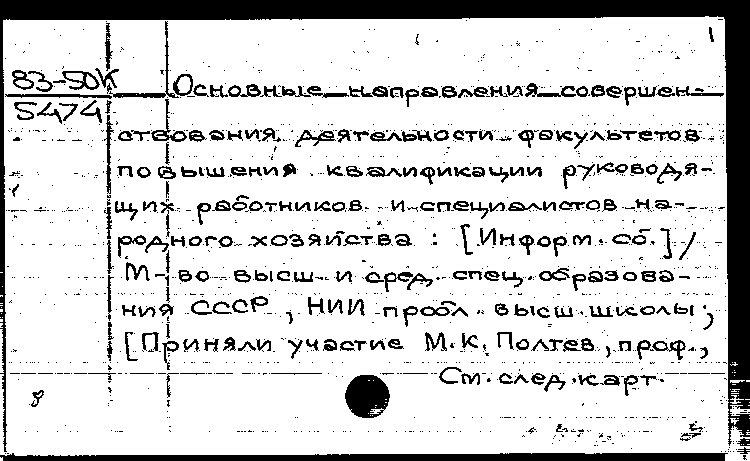 1
83-50К
5474
Основные направления совершен-
ствования деятельности факультетов
повышения квалификации руководя-
щих работников и специалистов на-
родного хозяйства : [Информ. сб.] /
М-во высш. и сред. спец. образова-
ния СССР, НИИ пробл. высш. школы;
[Приняли участие М.К. Полтев, проф.,
См. след. карт.
8